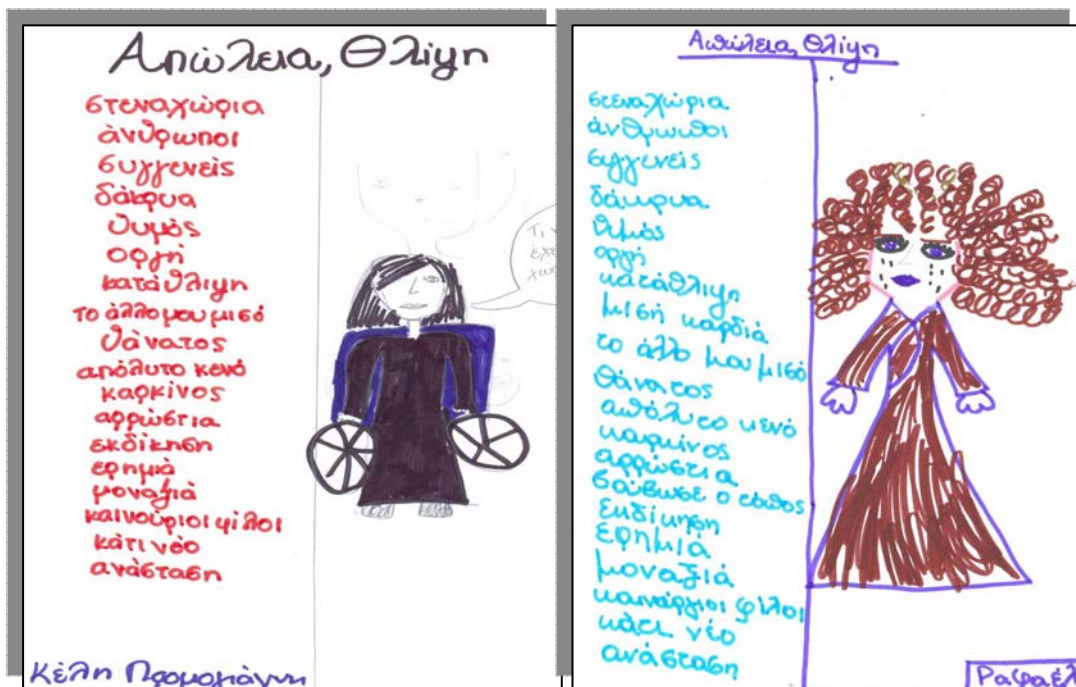 Απώλεια, Θλίψη
στεναχώρια
άνθρωποι
συγγενείς
δάκρυα
θυμός
οργή
κατάθλιψη
το άλλο μου μισό
θάνατος
απόλυτο κενό
καρκίνος
αρρώστια
εκδίκηση
ερημιά
μοναξιά
καινούριοι φίλοι
κάτι νέο
ανάσταση
Τι
έχε
Κέλη
Απώλεια, Θλίψη
στεναχώρια
άνθρωποι
συγγενείς
δάκρυα
θυμός
οργή
κατάθλιψη
μισή καρδιά
το άλλο μου μισό
θάνατος
απόλυτο κενό
καρκίνος
αρρώστια
ο τόπος
εκδίκηση
ερημιά
μοναξιά
καινούργιοι φίλοι
κάτι νέο
ανάσταση
Ραφαέλ